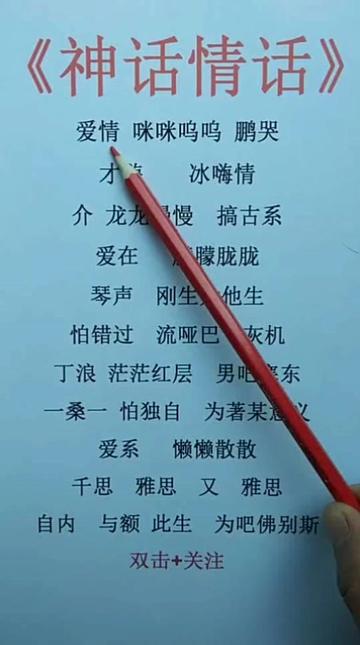 《神话情话》
爱情 咪咪呜呜 鹏哭
才 冰嗨情
介 龙龙 慢 搞古系
爱在 朦胧胧
琴声 刚生 他生
怕错过 流哑巴 灰机
丁浪 茫茫红层 男吧 东
一桑一 怕独自 为著某 义
爱系 懒懒散散
千思 雅思 又 雅思
自内 与额 此生 为吧佛别斯
双击+关注